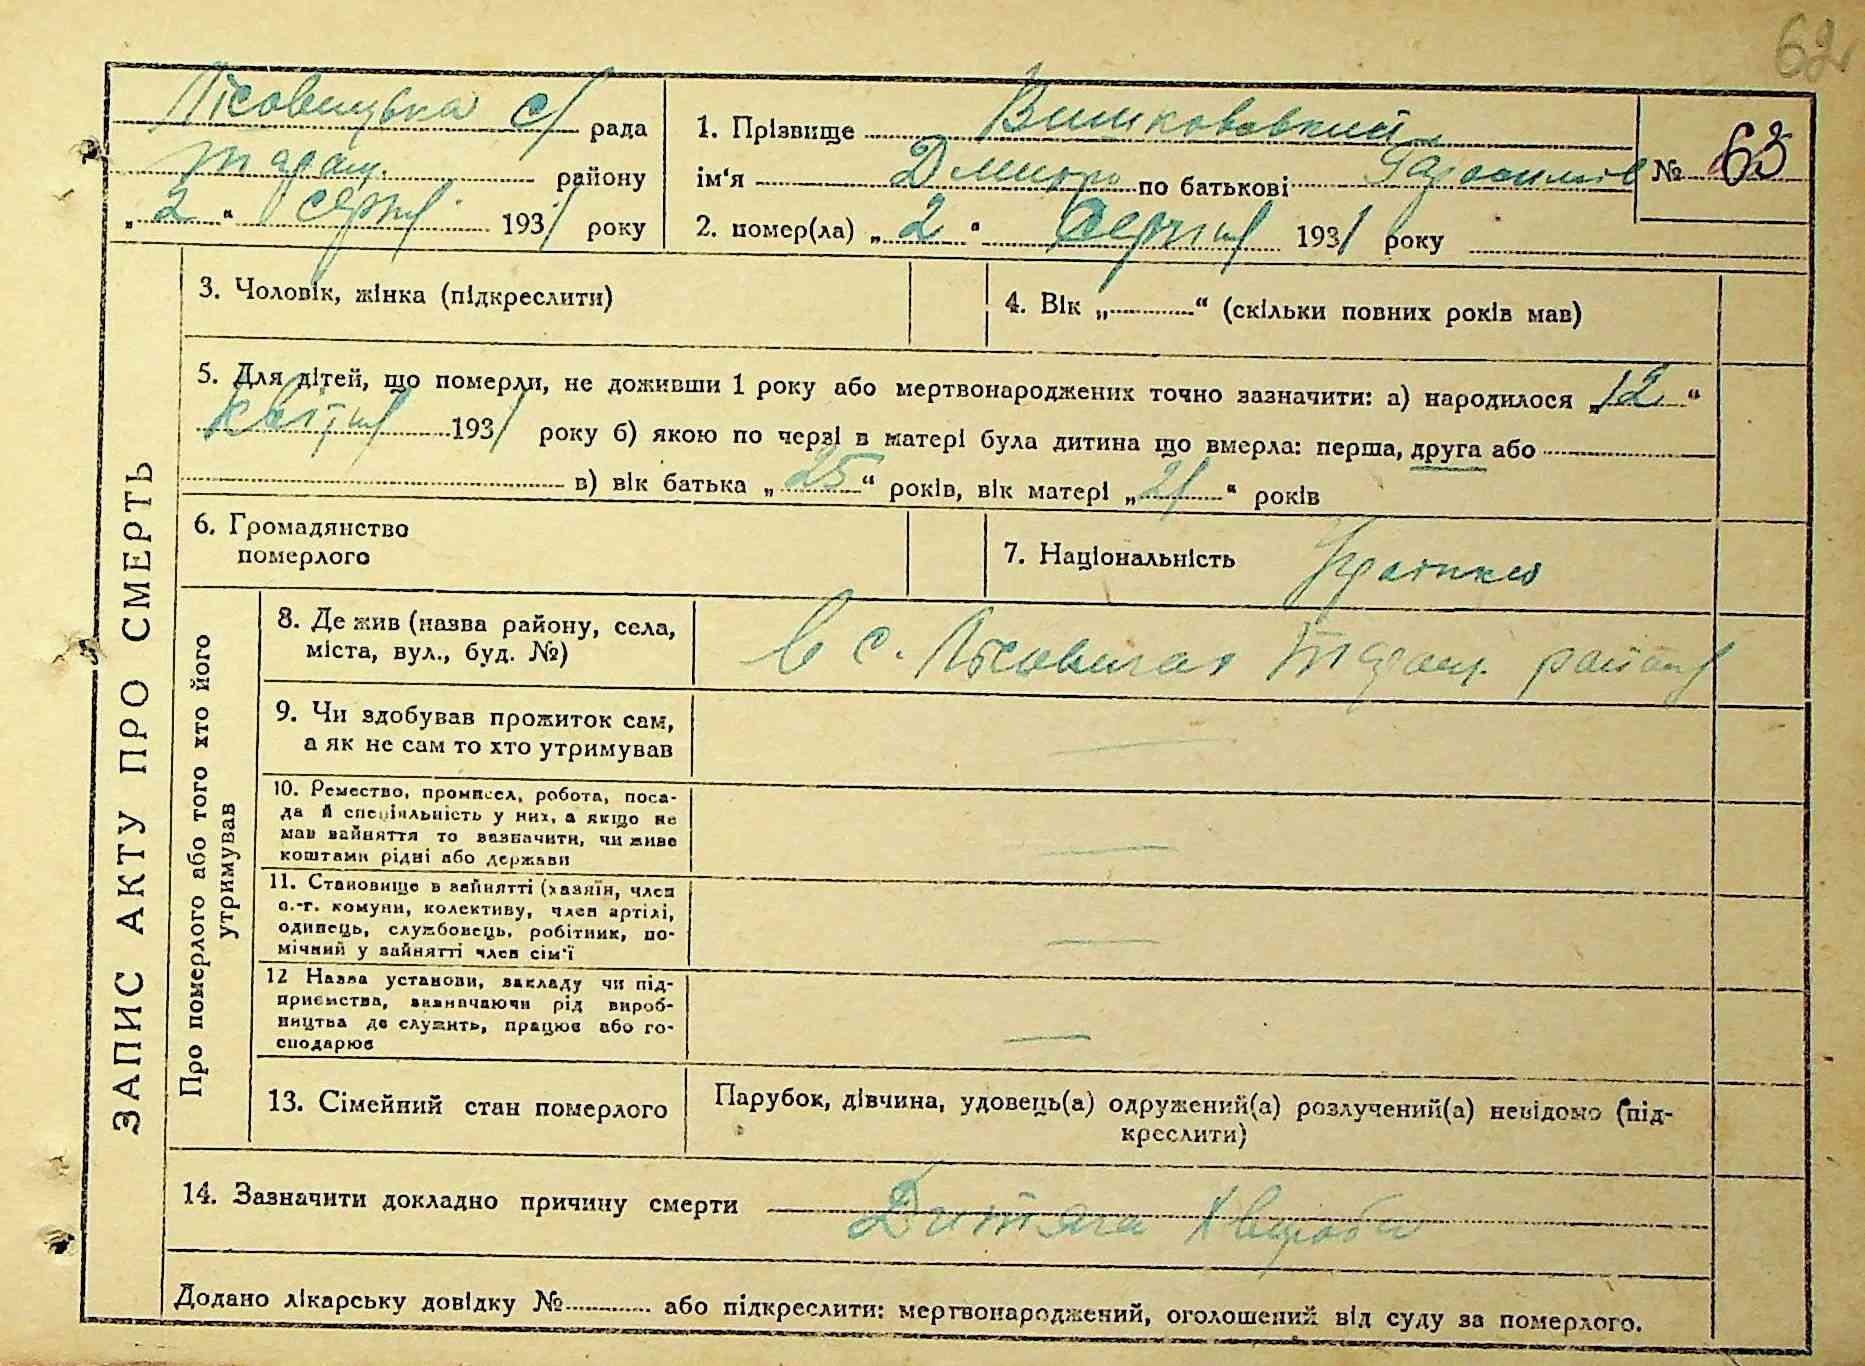 62
Лісовицька с/ рада
Таращ. району
„2“ серпня 1931 року
1. Прізвище Вишковський
ім‘я Дмитро по батькові
2. помер(ла) „2“ Серпня 1931 року
№ 63
ЗАПИС АКТУ ПРО СМЕРТЬ
3. Чоловік, жінка (підкреслити)
4. Вік „ “ (скільки повних років мав)
5. Для дітей, що померли, не доживши 1 року або мертвонароджених точно зазначити: а) народилося „12“
квітня 1931 року б) якою по черзі в матері була дитина що вмерла: перша, друга або
в) вік батька „25“ років, вік матері „21“ років
6. Громадянство
померлого
7. Національність Українець
Про померлого або того хто його
утримував
8. Де жив (назва району, села,
міста, вул., буд. №)
в с. Лісовичах Таращ. району
9. Чи здобував прожиток сам,
а як не сам то хто утримував
10. Ремество, промисел, робота, поса-
да й спеціяльність у них, а якщо не
мав зайняття то зазначити, чи живе
коштами рідні або держави
11. Становище в зайнятті (хазяїн, член
с.-г. комуни, колективу, член артілі,
одинець, службовець, робітник, по-
мічний у зайнятті член сім‘ї
12 Назва установи, закладу чи під-
приємства, зазначаючи рід вироб-
ництва де служить, працює або го-
сподарює
13. Сімейний стан померлого
Парубок, дівчина, удовець(а) одружений(а) розлучений(а) невідомо (під-
креслити)
14. Зазначити докладно причину смерти Дитяча хвороба
Додано лікарську довідку № або підкреслити: мертвонароджений, оголошений від суду за померлого.